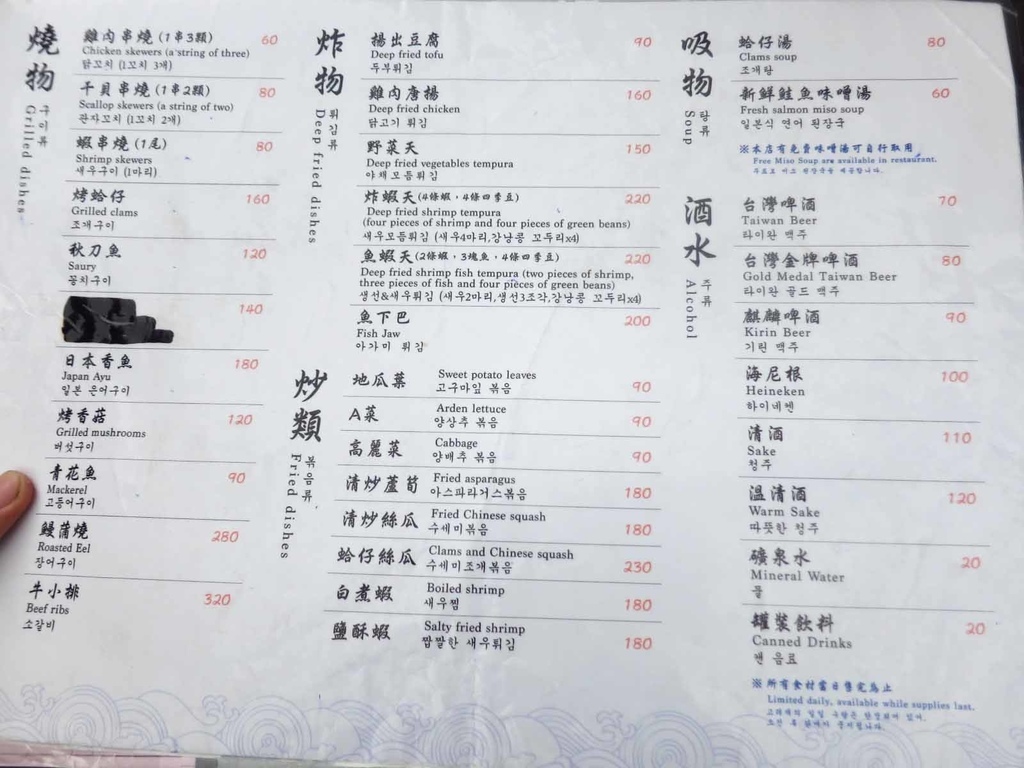 燒物
구이류
Grilled dishes
雞肉串燒 (1串3顆) 60
Chicken skewers (a string of three)
닭꼬치 (1꼬치 3개)
干貝串燒 (1串2顆) 80
Scallop skewers (a string of two)
관자꼬치 (1꼬치 2개)
蝦串燒 (1尾) 80
Shrimp skewers
새우구이 (1마리)
烤蛤仔 160
Grilled clams
조개구이
秋刀魚 120
Saury
꽁치구이
140
日本香魚 180
Japan Ayu
일본 은어구이
烤香菇 120
Grilled mushrooms
버섯구이
青花魚 90
Mackerel
고등어구이
鰻蒲燒 280
Roasted Eel
장어구이
牛小排 320
Beef ribs
소갈비
炸物
튀김류
Deep fried dishes
揚出豆腐 90
Deep fried tofu
두부튀김
雞肉唐揚 160
Deep fried chicken
닭고기 튀김
野菜天 150
Deep fried vegetables tempura
야채모듬튀김
炸蝦天 (4條蝦，4條四季豆) 220
Deep fried shrimp tempura
(four pieces of shrimp and four pieces of green beans)
새우모듬튀김 (새우4마리,강낭콩 꼬두리x4)
魚蝦天 (2條蝦，3塊魚，4條四季豆) 220
Deep fried shrimp fish tempura (two pieces of shrimp,
three pieces of fish and four pieces of green beans)
생선&새우튀김 (새우2마리,생선3조각,강낭콩 꼬두리x4)
魚下巴 200
Fish Jaw
아가미 튀김
炒類
볶음류
Fried dishes
地瓜葉 Sweet potato leaves
고구마잎 볶음 90
A菜 Arden lettuce
양상추 볶음 90
高麗菜 Cabbage
양배추 볶음 90
清炒蘆筍 Fried asparagus
아스파라거스볶음 180
清炒絲瓜 Fried Chinese squash
수세미볶음 180
蛤仔絲瓜 Clams and Chinese squash
수세미조개볶음 230
白煮蝦 Boiled shrimp
새우찜 180
鹽酥蝦 Salty fried shrimp
짭짤한 새우튀김 180
吸物
탕류
Soup
蛤仔湯 80
Clams soup
조개탕
新鮮鮭魚味噌湯 60
Fresh salmon miso soup
일본식 연어 된장국
※本店有免費味噌湯可自行取用
Free Miso Soup are available in restaurant.
酒水
주류
Alcohol
台灣啤酒 70
Taiwan Beer
타이완 맥주
台灣金牌啤酒 80
Gold Medal Taiwan Beer
타이완 골드 맥주
麒麟啤酒 90
Kirin Beer
기린 맥주
海尼根 100
Heineken
하이네켄
清酒 110
Sake
청주
溫清酒 120
Warm Sake
따뜻한 청주
礦泉水 20
Mineral Water
물
罐裝飲料 20
Canned Drinks
캔 음료
※所有食材當日售完為止
Limited daily, available while supplies last.